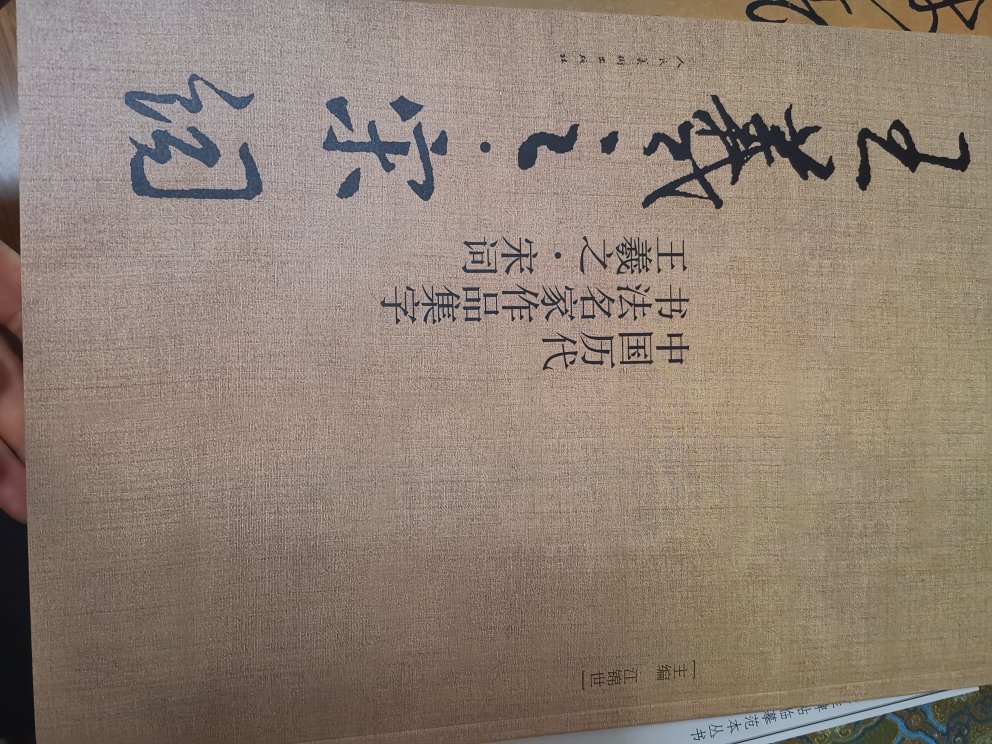 王羲之·宋词
人民美术出版社
中国历代
书法名家作品集字
王羲之·宋词
[主编 江锦世]
碑帖临摹范本丛书